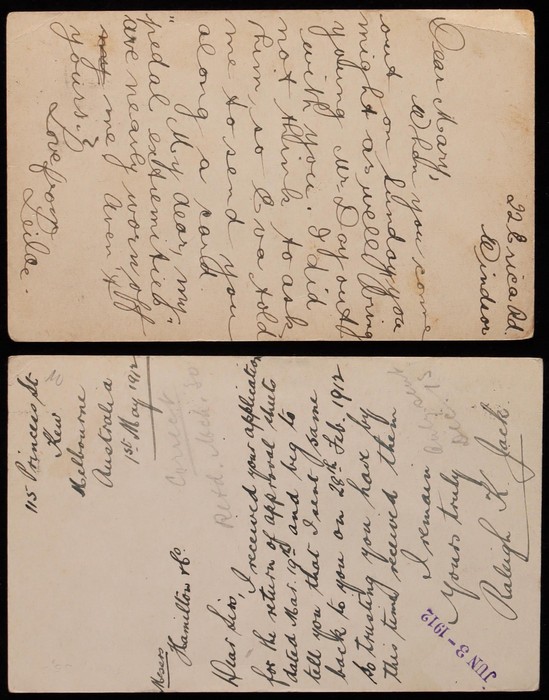 22 Erica Rd.
Windsor
Dear Mary,
When you come
out on Sunday you
might as well bring
young Mr Day out
with you. I did
not think to ask
him, so Eva told
me to send you
along a card.
My dear, my
"pedal extremities"
are nearly worn off
me, aren't
yours?
Love from
Lilla.
115 Princess St
Kew
Melbourne
Australia
1st May 1912
Correct
Retd. Mch. 30
Messrs
Hamilton & Co.
Dear Sirs,
I received your application
for the return of approval sheets
dated Mar. 19th and beg to
tell you that I sent same
back to you on 28th Feb. 1912
so trusting you have by
this time received them
I remain
Yours truly
Raleigh K. Jack.
JUN 3 - 1912